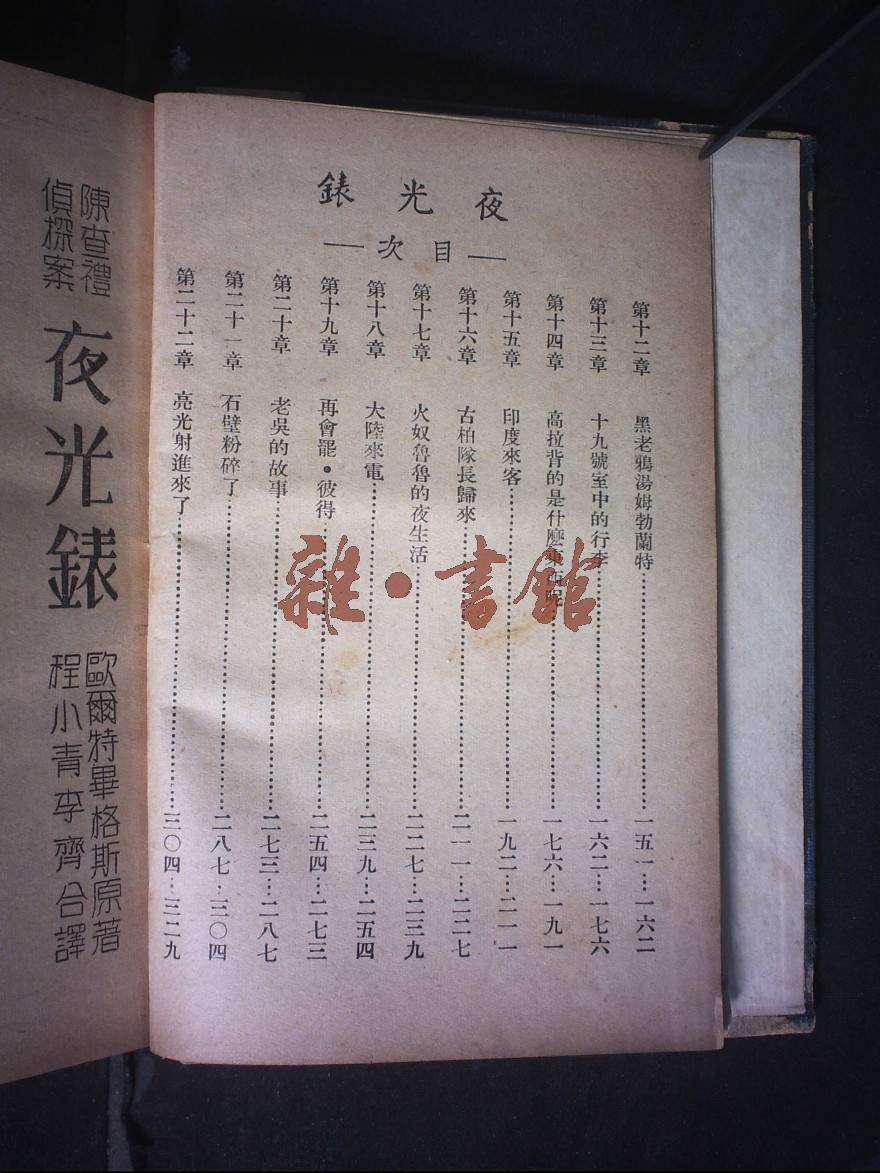 夜光錶
—目次—
第十二章 黑老鴉湯姆勃蘭特…………一五一…一六二
第十三章 十九號室中的行李…………一六二…一七六
第十四章 高拉背的是什麼東西呢…………一七六…一九一
第十五章 印度來客…………一九二…二一一
第十六章 古柏隊長歸來…………二一一…二二七
第十七章 火奴魯魯的夜生活…………二二七…二三九
第十八章 大陸來電…………二三九…二五四
第十九章 再會罷•彼得…………二五四…二七三
第二十章 老吳的故事…………二七三…二八七
第二十一章 石壁粉碎了…………二八七…三〇四
第二十二章 亮光射進來了…………三〇四…三二九
陳查禮
偵探案
夜光錶
歐爾特畢格斯原著
程小青李齊合譯
雜•書館